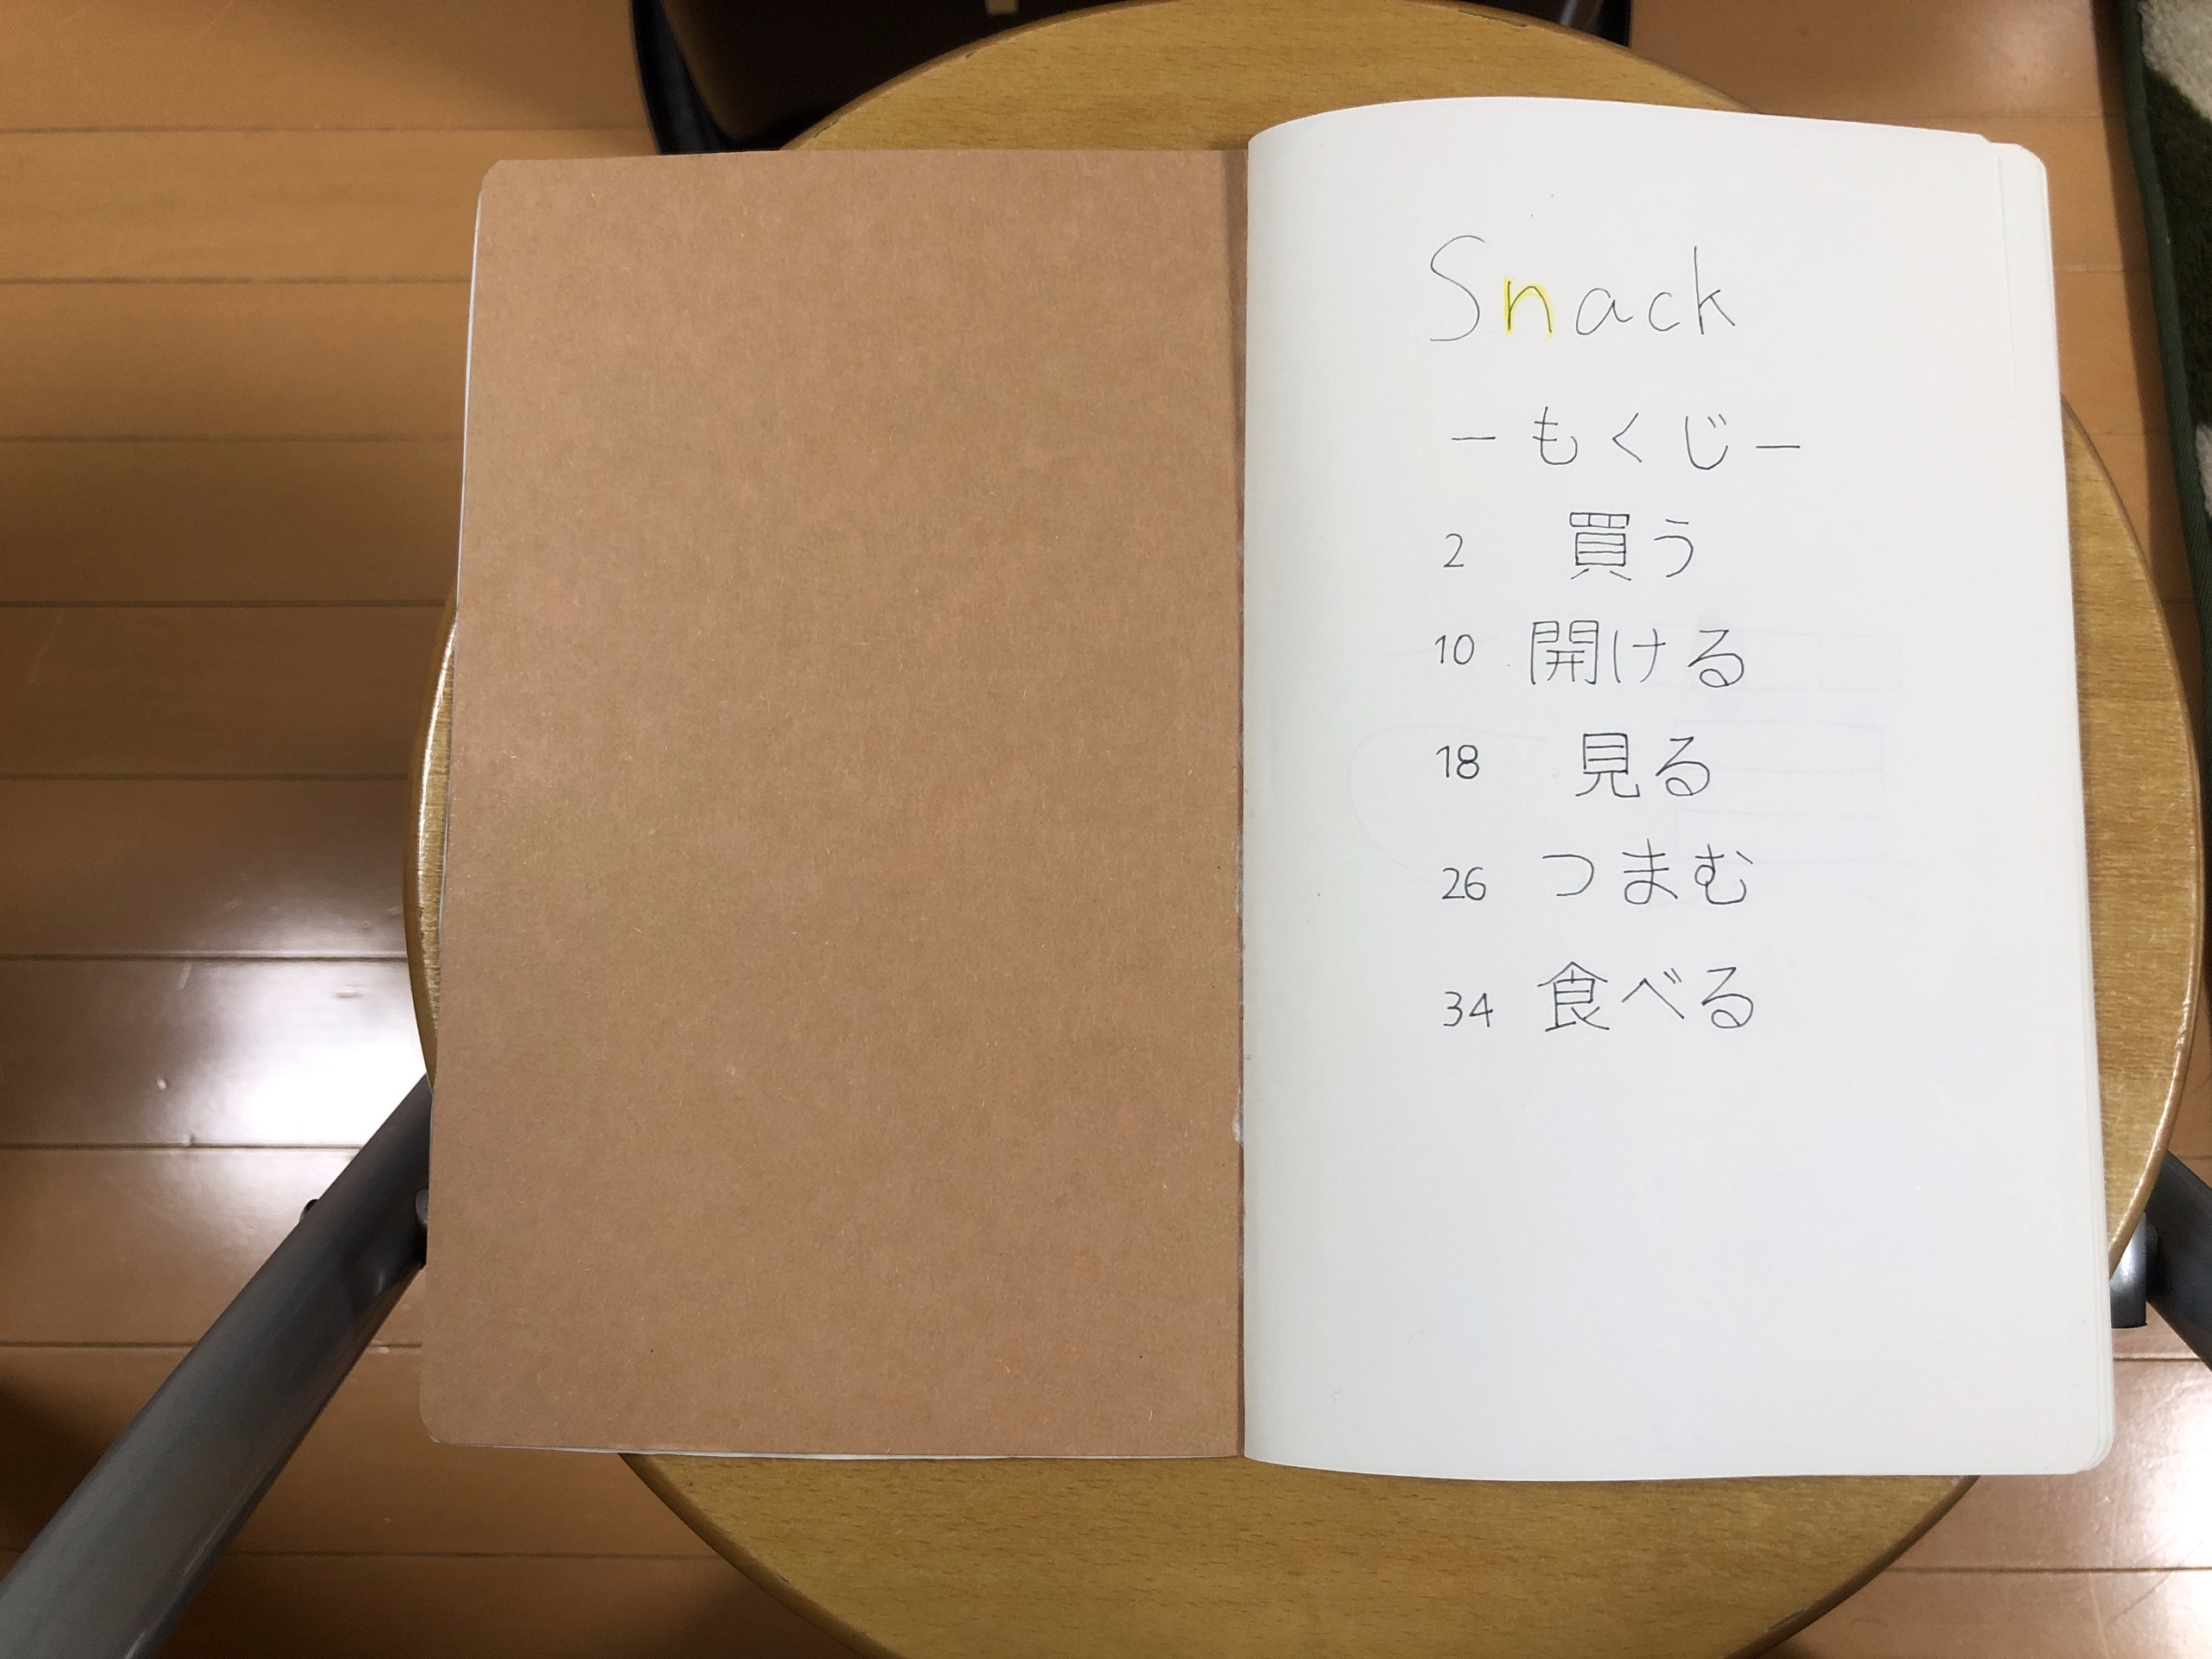 Snack
ーもくじー
2 買う
10 開ける
18 見る
26 つまむ
34 食べる